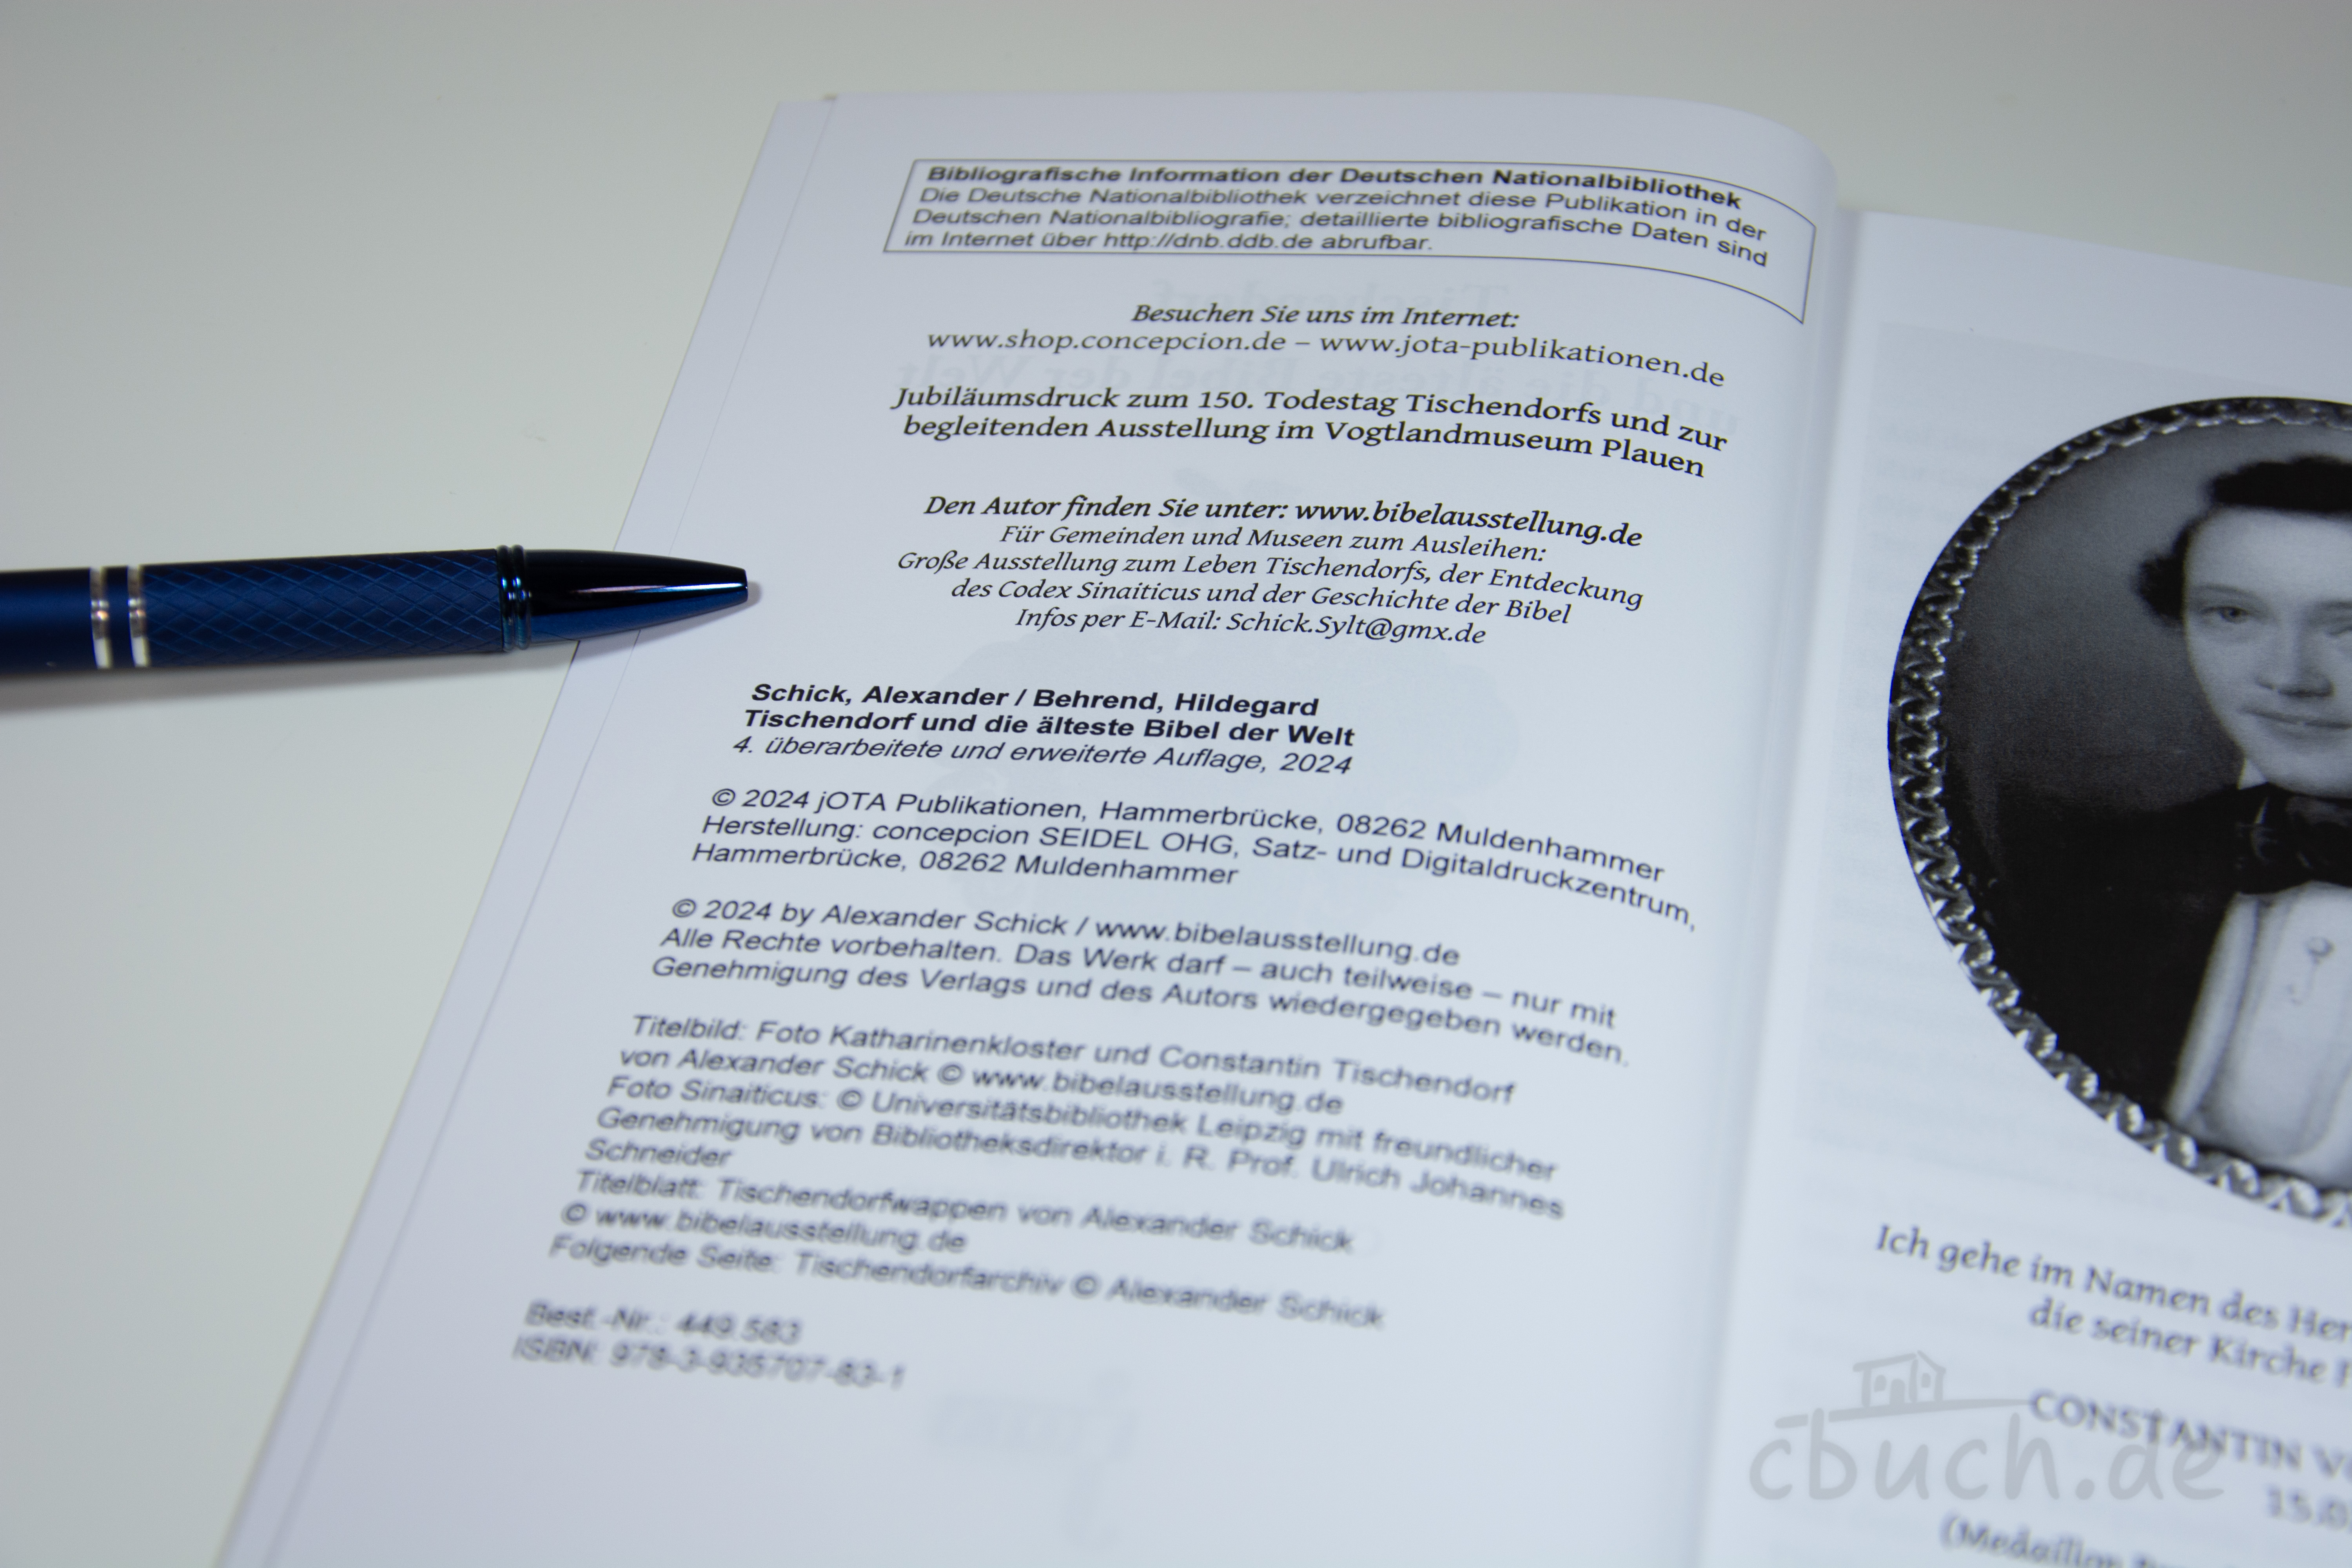 Bibliografische Information der Deutschen Nationalbibliothek
Die Deutsche Nationalbibliothek verzeichnet diese Publikation in der
Deutschen Nationalbibliografie; detaillierte bibliografische Daten sind
im Internet über http://dnb.ddb.de abrufbar.
Besuchen Sie uns im Internet:
www.shop.concepcion.de – www.jota-publikationen.de
Jubiläumsdruck zum 150. Todestag Tischendorfs und zur
begleitenden Ausstellung im Vogtlandmuseum Plauen
Den Autor finden Sie unter: www.bibelausstellung.de
Für Gemeinden und Museen zum Ausleihen:
Große Ausstellung zum Leben Tischendorfs, der Entdeckung
des Codex Sinaiticus und der Geschichte der Bibel
Infos per E-Mail: Schick.Sylt@gmx.de
Schick, Alexander / Behrend, Hildegard
Tischendorf und die älteste Bibel der Welt
4. überarbeitete und erweiterte Auflage, 2024
© 2024 jOTA Publikationen, Hammerbrücke, 08262 Muldenhammer
Herstellung: concepcion SEIDEL OHG, Satz- und Digitaldruckzentrum,
Hammerbrücke, 08262 Muldenhammer
© 2024 by Alexander Schick / www.bibelausstellung.de
Alle Rechte vorbehalten. Das Werk darf – auch teilweise – nur mit
Genehmigung des Verlags und des Autors wiedergegeben werden.
Titelbild: Foto Katharinenkloster und Constantin Tischendorf
von Alexander Schick © www.bibelausstellung.de
Foto Sinaiticus: © Universitätsbibliothek Leipzig mit freundlicher
Genehmigung von Bibliotheksdirektor i. R. Prof. Ulrich Johannes
Schneider
Titelblatt: Tischendorfwappen von Alexander Schick
© www.bibelausstellung.de
Folgende Seite: Tischendorfarchiv © Alexander Schick
Best.-Nr.: 449.583
ISBN: 978-3-935707-83-1
Ich gehe im Namen des
die seiner Kirche
CONSTANTIN
15.0
(Medaillon
cbuch.de